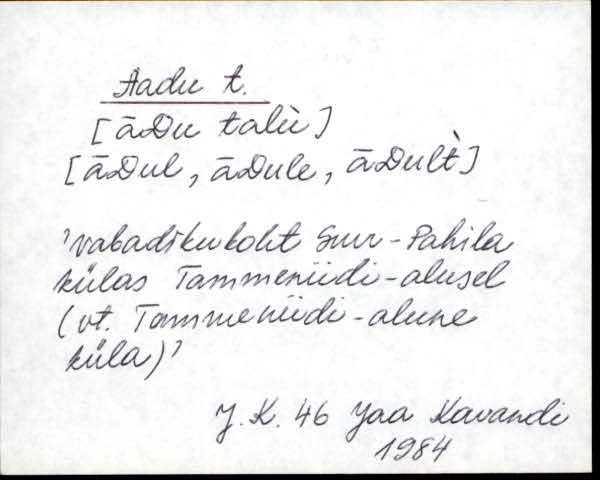 Aadu t.
[āDu talù]
[āDul, āDule, āDult̀]
'vabadikukoht Suur-Pahila
külas Tammeniidi-alusel
(vt. Tammeniidi-alune
küla)'
J. K. 46 Jaa Kavandi
1984